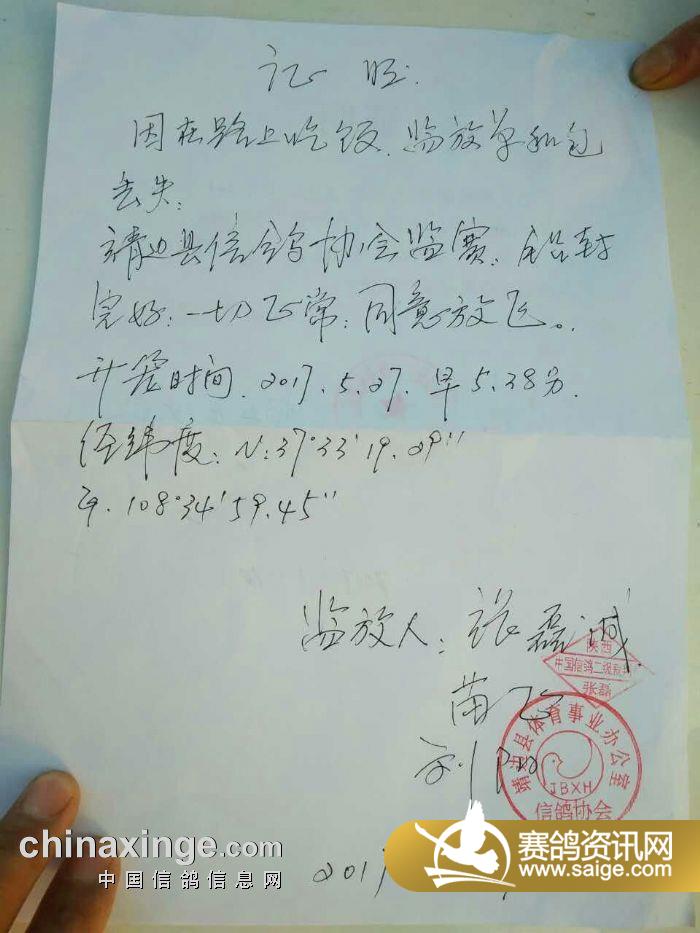 证明.
因在路上吃饭.监放单和包
丢失:
靖边县信鸽协会监赛:铅封
完好:一切正常:同意放飞。
开笼时间.2017.5.27.早5.38分.
经纬度:N:37°33′19.29″
E.108°34′59.45″
监放人:张磊
陕西
中国信鸽二级裁判
张磊
苗飞
刘阳
靖边县体育事业办公室
JBXH
信鸽协会
chinaxinge.com
中国信鸽信息网
2017
赛鸽资讯网
www.saige.com